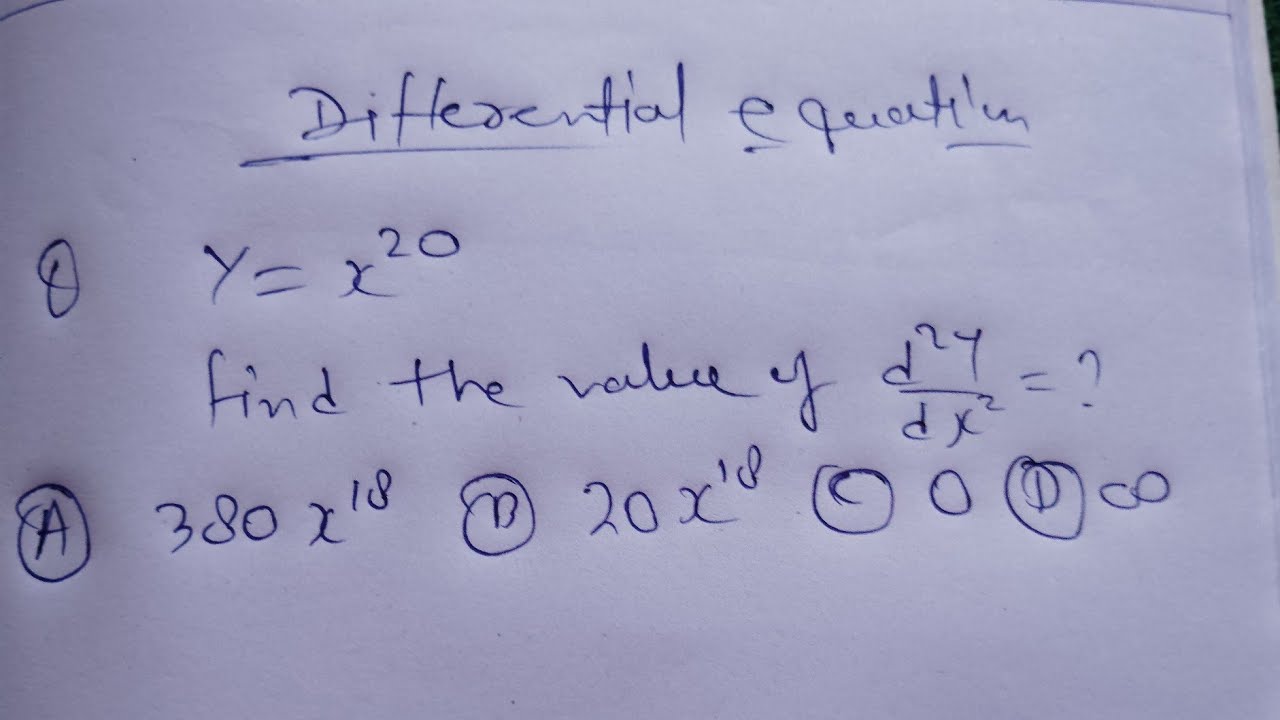 Differential equation
Q y = x^20
find the value of d^2y/dx^2 = ?
(A) 380 x^18 (B) 20 x^18 (C) 0 (D) ∞